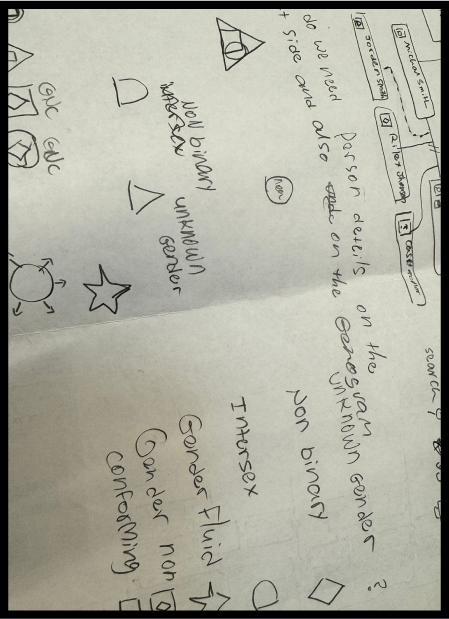 Michael Smith
Jorden Smith
Riley Johnson
Casey
search
do we need person details on the
+ side and also on the Genogram
unknown Gender ?
non
Non binary
Intersex
Gender fluid
Gender non
conforming
Non binary
intersex
unknown
Gender
GNC GNC